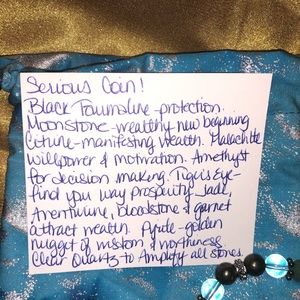 Serious Coin!
Black Tourmaline - protection.
Moonstone - wealthy new beginning
Citrine - manifesting wealth. Malachite
willpower & motivation. Amethyst
for decision making. Tigers Eye -
find you way prosperity - Jade,
Aventurine, bloodstone & garnet
attract wealth. Pyrite - golden
nugget of wisdom & worthiness.
Clear Quartz to Amplify all stones